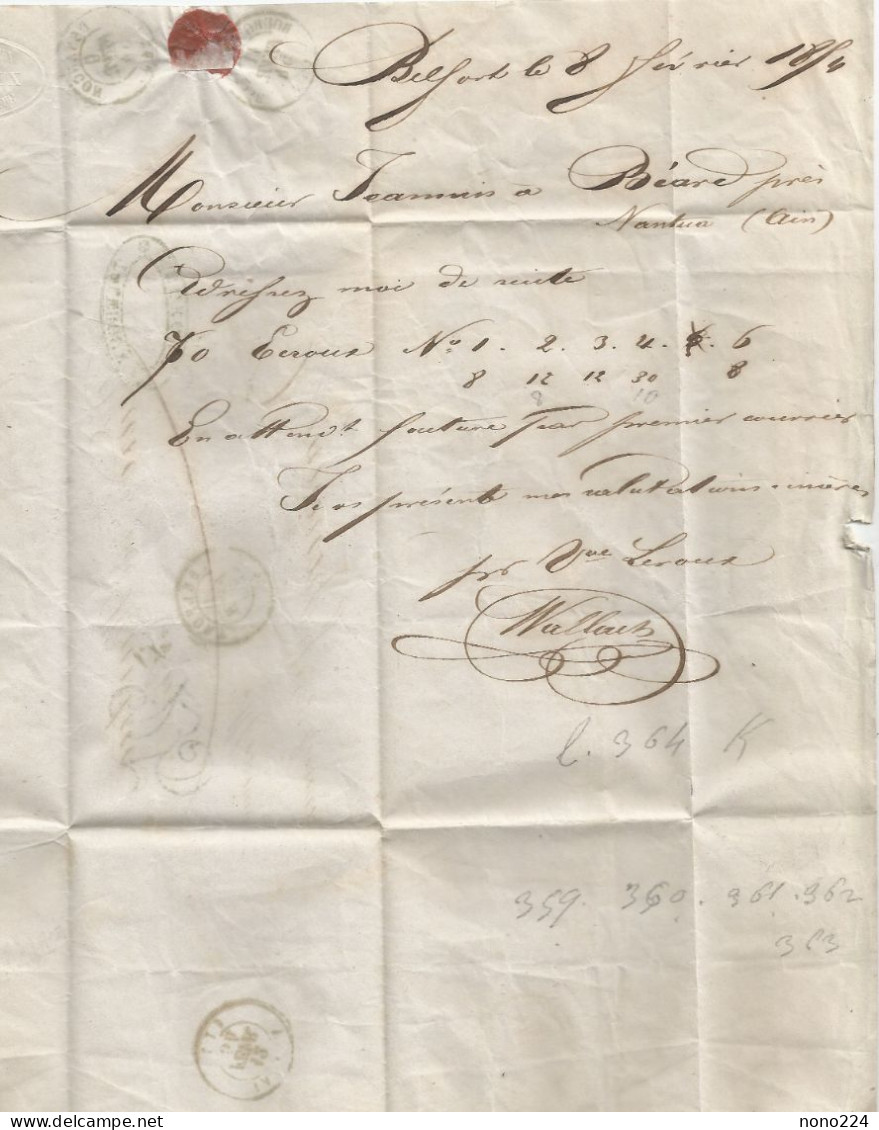 Belfort le 8 février 1854
Monsieur Jeannin à Béard près
Nantua (Ain)
Adressez moi de suite
70 Ecroux No. 1. 2. 3. 4. 5. 6
8 12 12 30 8
8 10
En attendt. facture par premier courrier
Je vs présente mes salutations sincères
pr Vve Leroux
Wallach
l. 364 K
359. 360. 361. 362
363
Posted by nono224